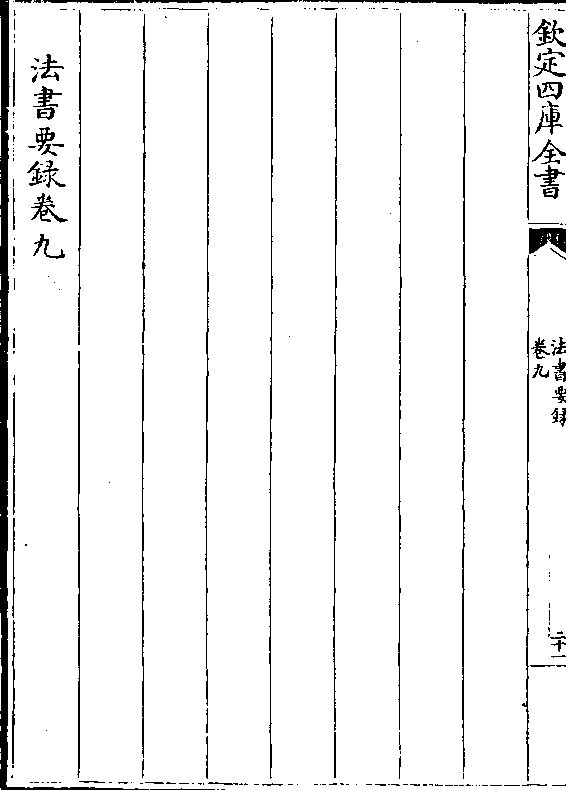 欽定四庫全書
法書要録
卷九
二十一
法書要録卷九